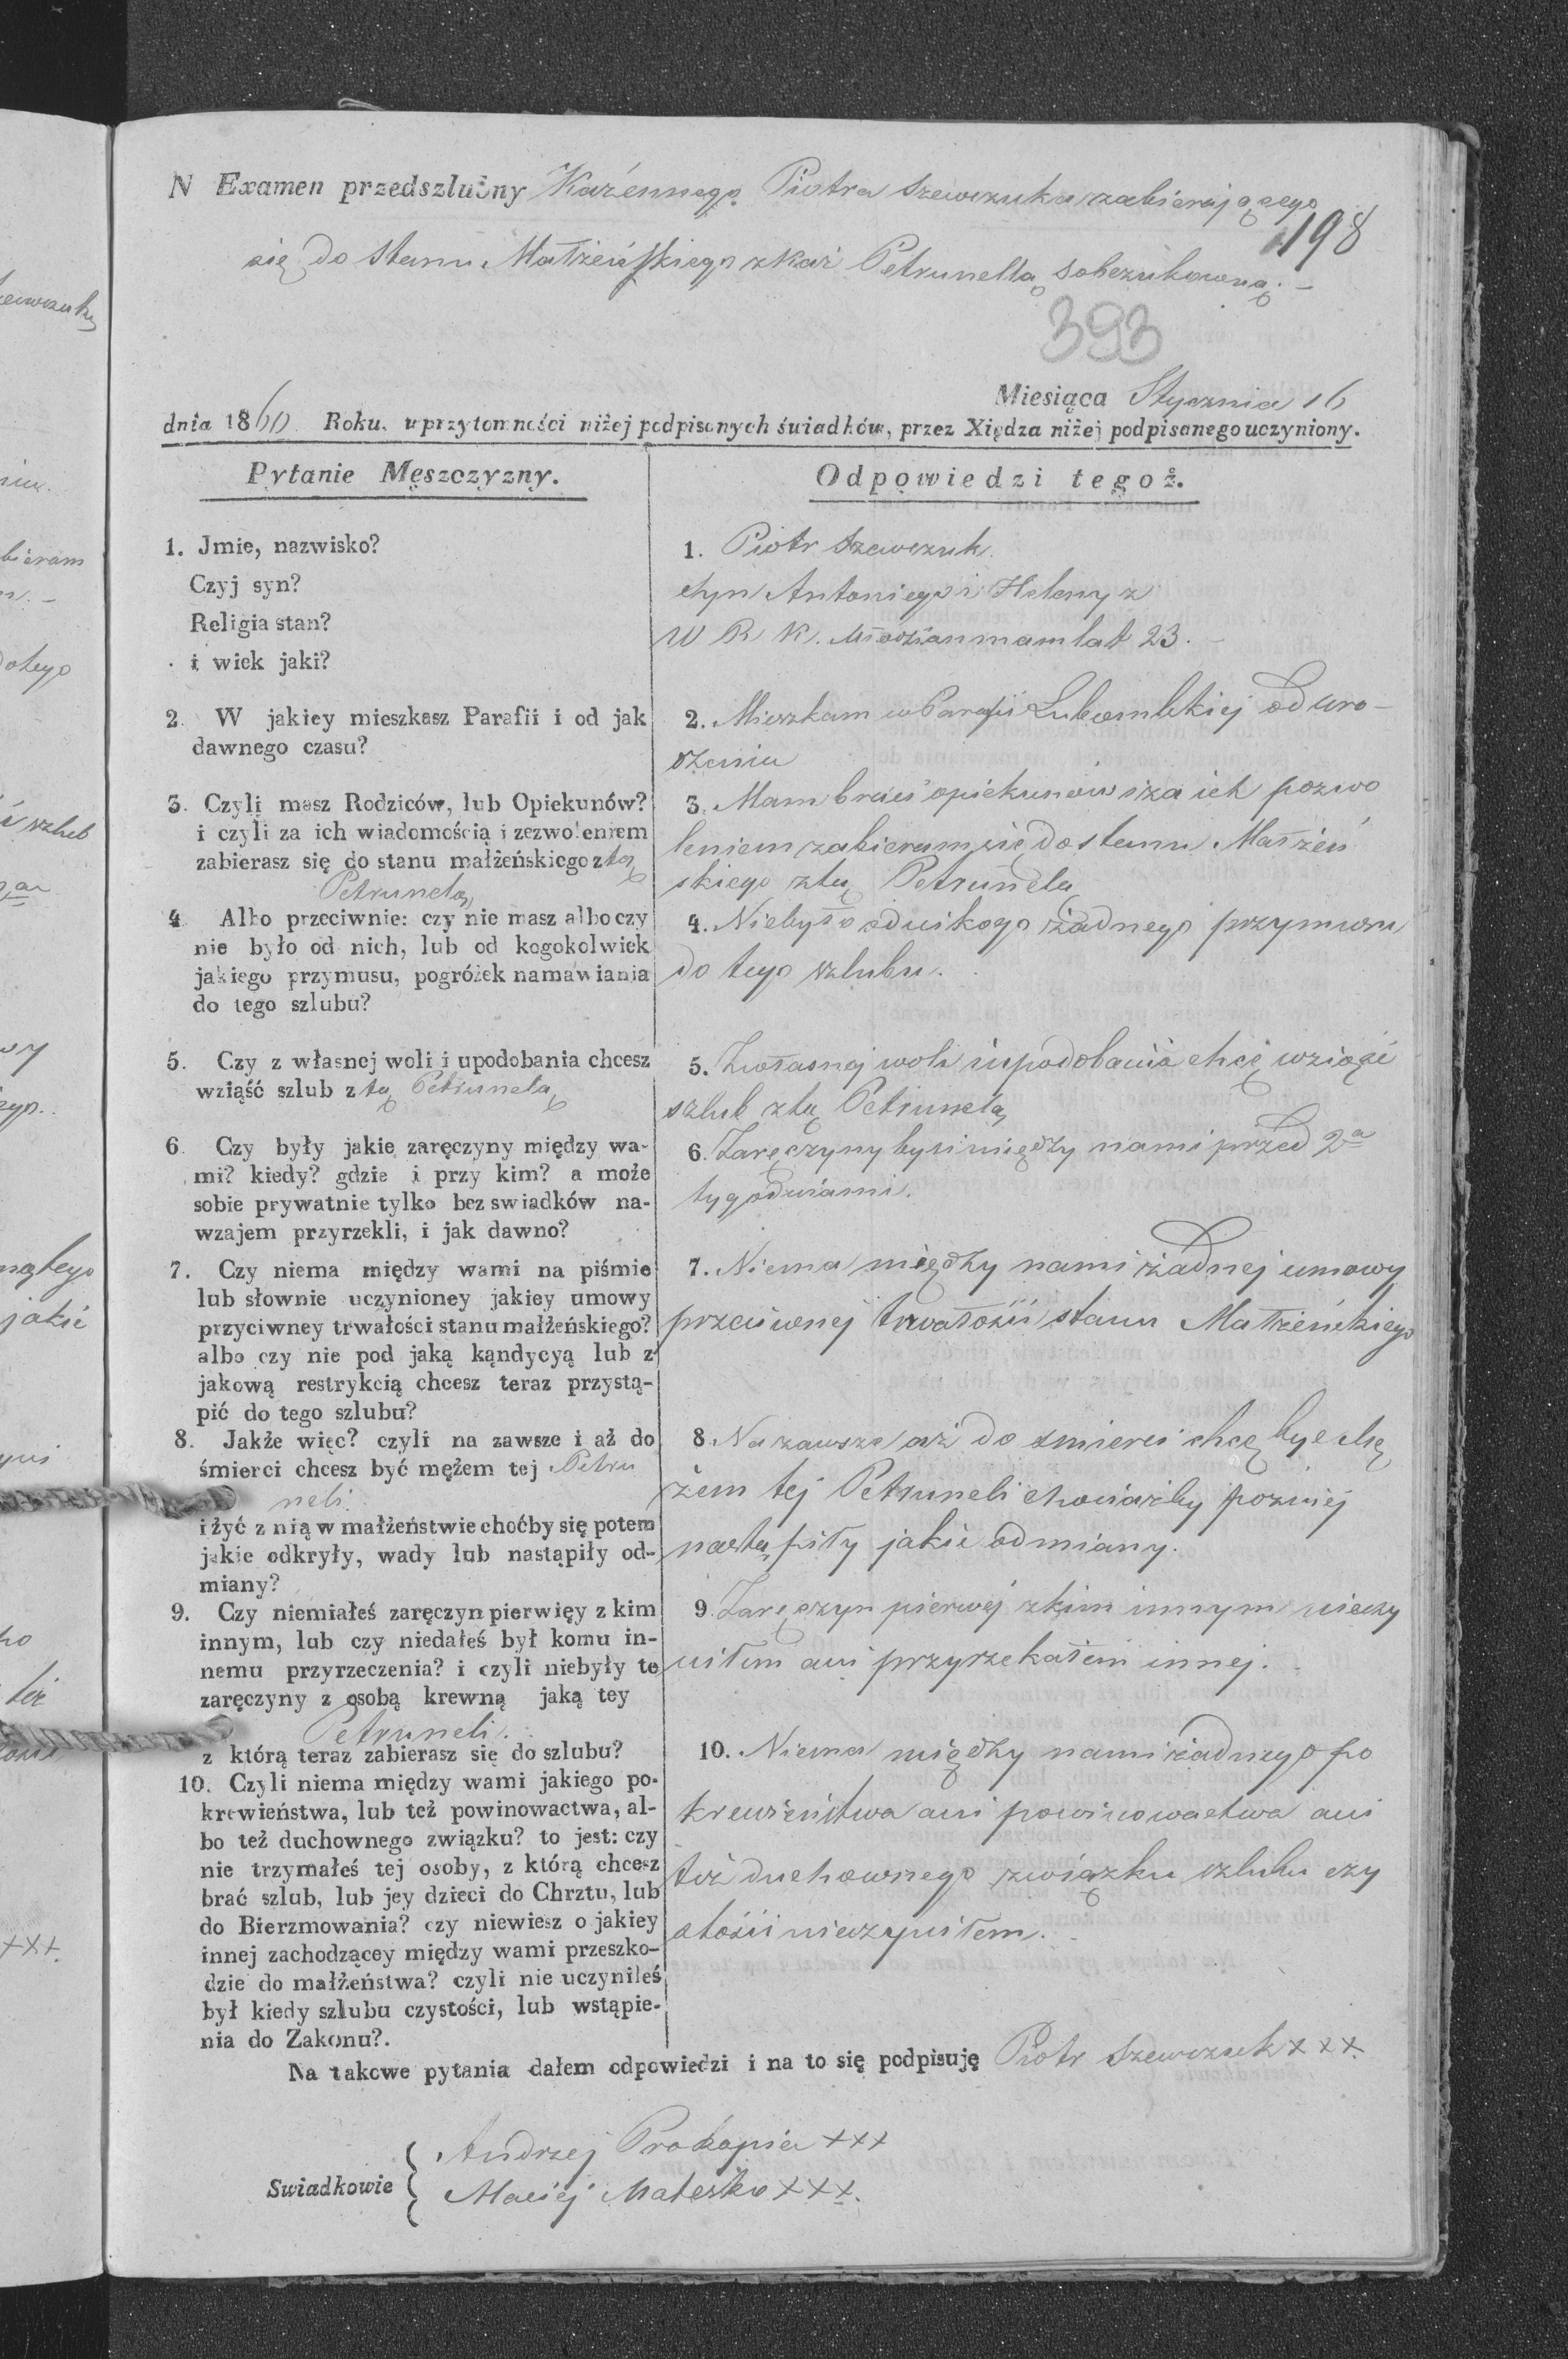 N Examen przedszlubny Kazénnego Piotra Szewczuka zabierającego
198
się do Stanu Małżeńskiego z Kaź Petrunellą Sobczukowną. –
393
Miesiąca Stycznia 16
dnia 1860 Roku, w przytomności niżej podpisanych świadków, przez Xiędza niżej podpisanego uczyniony.
Pytanie Męszczyzny.
1. Jmie, nazwisko?
Czyj syn?
Religia stan?
i wiek jaki?
2. W jakiey mieszkasz Parafii i od jak
dawnego czasu?
3. Czyli masz Rodziców, lub Opiekunów?
i czyli za ich wiadomością i zezwoleniem
zabierasz się do stanu małżeńskiego z tą
Petrunelą
4. Albo przeciwnie: czy nie masz albo czy
nie było od nich, lub od kogokolwiek
jakiego przymusu, pogróżek namawiania
do tego szlubu?
5. Czy z własnej woli i upodobania chcesz
wziąść szlub z tą Petrunelą
6. Czy były jakie zaręczyny między wa-
mi? kiedy? gdzie i przy kim? a może
sobie prywatnie tylko bez swiadków na-
wzajem przyrzekli, i jak dawno?
7. Czy niema między wami na piśmie
lub słownie uczynioney jakiey umowy
przyciwney trwałości stanu małżeńskiego?
albo czy nie pod jaką kąndycyą lub z
jakową restrykcią chcesz teraz przystą-
pić do tego szlubu?
8. Jakże więc? czyli na zawsze i aż do
śmierci chcesz być mężem tej Petru
neli.
i żyć z nią w małżeństwie choćby się potem
jakie odkryły, wady lub nastąpiły od-
miany?
9. Czy niemiałeś zaręczyn pierwięy z kim
innym, lub czy niedałeś był komu in-
nemu przyrzeczenia? i czyli niebyły te
zaręczyny z osobą krewną jaką tey
Petruneli.
z którą teraz zabierasz się do szlubu?
10. Czyli niema między wami jakiego po-
krewieństwa, lub też powinowactwa, al-
bo też duchownego związku? to jest: czy
nie trzymałeś tej osoby, z którą chcesz
brać szlub, lub jey dzieci do Chrztu, lub
do Bierzmowania? czy niewiesz o jakiey
innej zachodzącey między wami przeszko-
dzie do małżeństwa? czyli nie uczyniłeś
był kiedy szlubu czystości, lub wstąpie-
nia do Zakonu?.
Odpowiedzi tegoż.
1. Piotr Szewczuk
Syn Antoniego i Heleny z
W R K. Młodzian mam lat 23. –
2. Mieszkam w Parafii Lubomlskiej od uro-
dzeniu
3. Mam braci opiekunów i za ich pozwo
leniem zabieram się do stanu Małżeń
skiego z tą Petrunelą
4. Niebyło od nikogo żadnego przymusu
do tego szlubu.
5. Z własnej woli i upodobania chcę wziąść
szlub z tą Petrunelą
6. Zaręczyny byli między nami przed 2a
tygodniami.
7. Niema między nami żadnej umowy
przeciwnej trwałości stanu Małżeńskiego
8. Na zawsze aż do śmierci chcę być Mę
żem tej Petruneli chociażby pozniej
nastąpiły jakie odmiany.
9. Zaręczyn pierwéj z kim innym nieczy
niłem ani przyrzekałem innej.
10. Niema między nami żadnego po
krewieństwa ani powinowactwa ani
też duchownego związku szlubu czy
stości nieczyniłem.
Na takowe pytania dałem odpowiedzi i na to się podpisuję Piotr Szewczuk xxx.
Swiadkowie
Andrzej Prokopia xxx
Maciej Mateśko xxx.